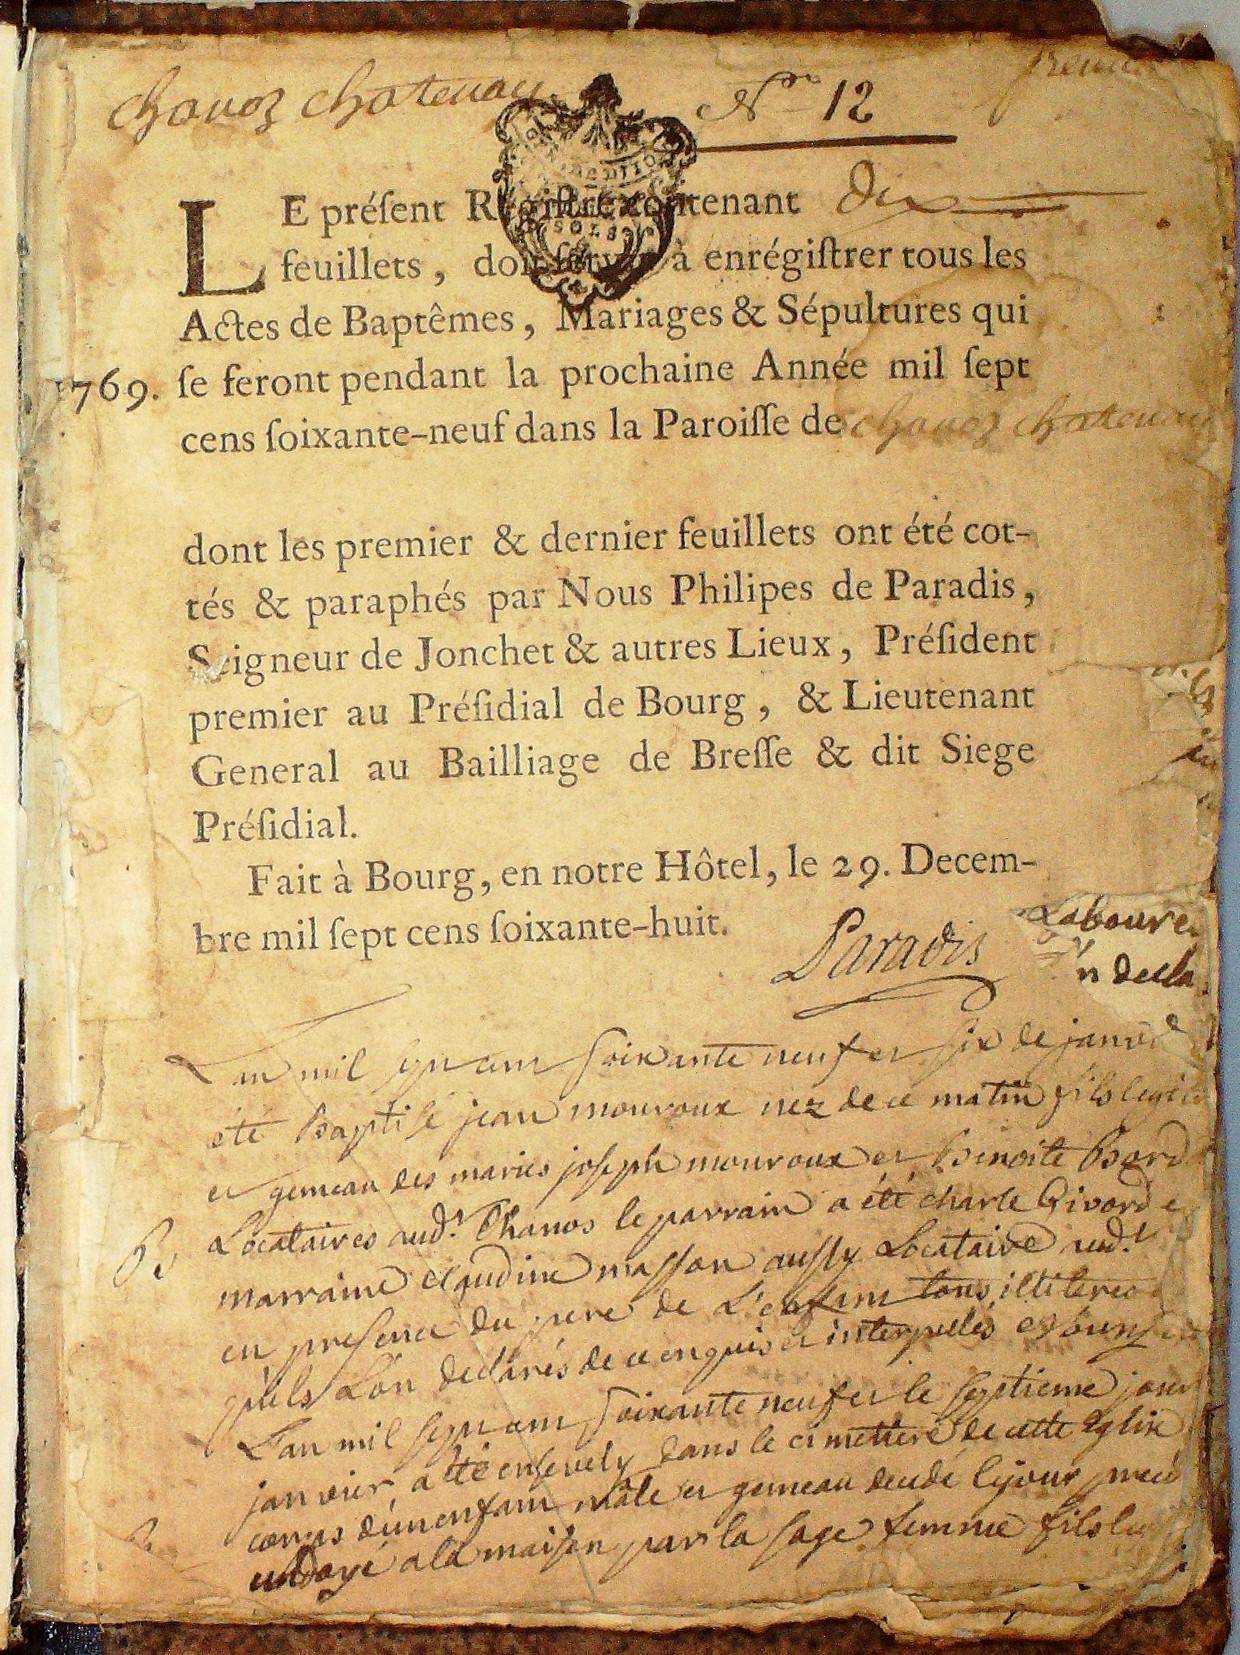 Chavoz Chatenay
N.º 12
premier
LE préſent Regiſtre contenant dix
feuillets, doit ſervir à enrégiſtrer tous les
Actes de Baptêmes, Mariages & Sépultures qui
1769. ſe feront pendant la prochaine Année mil ſept
cens ſoixante-neuf dans la Paroiſſe de chavoz chatenay
dont les premier & dernier feuillets ont été cot-
tés & paraphés par Nous Philipes de Paradis,
Seigneur de Jonchet & autres Lieux, Préſident
premier au Préſidial de Bourg, & Lieutenant
General au Bailliage de Breſſe & dit Siege
Préſidial.
Fait à Bourg, en notre Hôtel, le 29. Decem-
bre mil ſept cens ſoixante-huit.
Paradis
Laboure
n decla
L'an mil sept cent soixante neuf et six de janvi
été Baptisé jean mouroux nez de ce matin fils legit
et gemeau des maries joseph mouroux et Benoite Bord
B. Locataires aud.t Chanos le parrain a été charle Givord e
marraine claudine masson aussy Locataire aud.t
en presence du pere de L'enfant tous illiteres
qu'ils L'on declarés de ce enquis et interpellés
L'an mil sept cent soixante neuf et le septieme jour
janvier a été ensevely dans le cimettiere de cette Eglise
corps d'un enfant mâle et gemeau decedé le jour
ondoyé a la maison par la sage femme fils